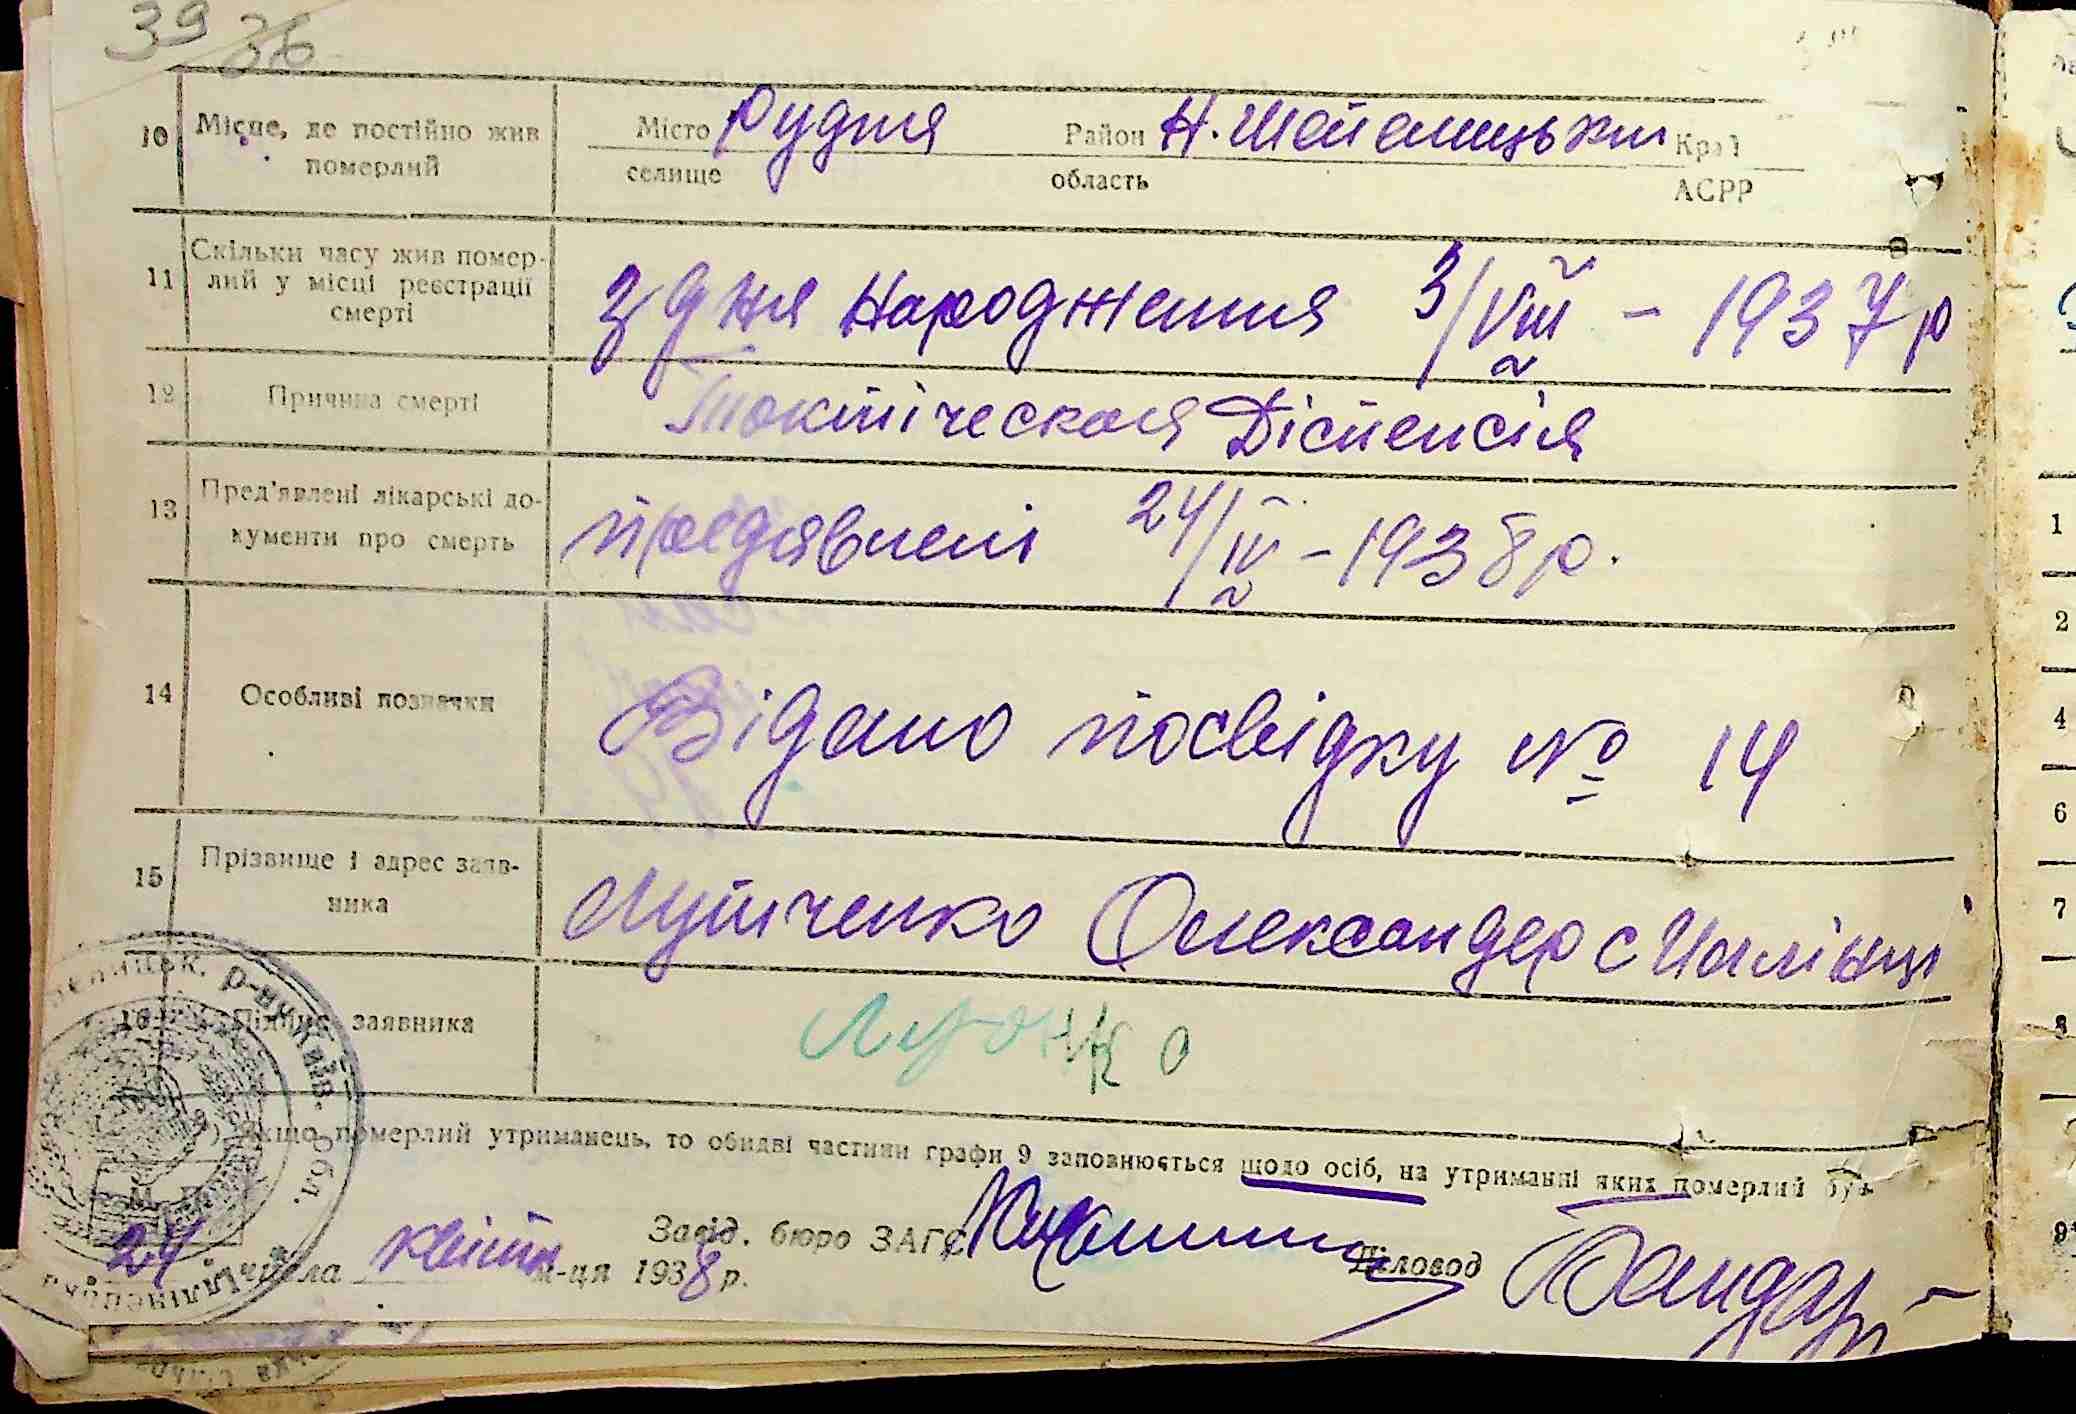 39 36
10 Місце, де постійно жив померлий Місто Рудня Район Н. Шепелицький Край
селище область АСРР
11 Скільки часу жив помер-
лий у місці реєстрації
смерті
з дня народження 3/VIII – 1937 р
12 Причина смерті Токсіческая Діспепсія
13 Пред'явлені лікарські до-
кументи про смерть
предявлені 24/IV – 1938 р.
14 Особливі позначки Відано посвідку № 14
15 Прізвище і адрес заяв-
ника
Лутченко Олександер с Іллінці
16 Підпис заявника
*) Якщо померлий утриманець, то обидві частини графи 9 заповнюється щодо осіб, на утриманні яких померлий був
Завід. бюро ЗАГС Діловод
24 числа квітн м-ця 1938 р.
р-ну Київ. обл.
1
2
4
6
7
8
9